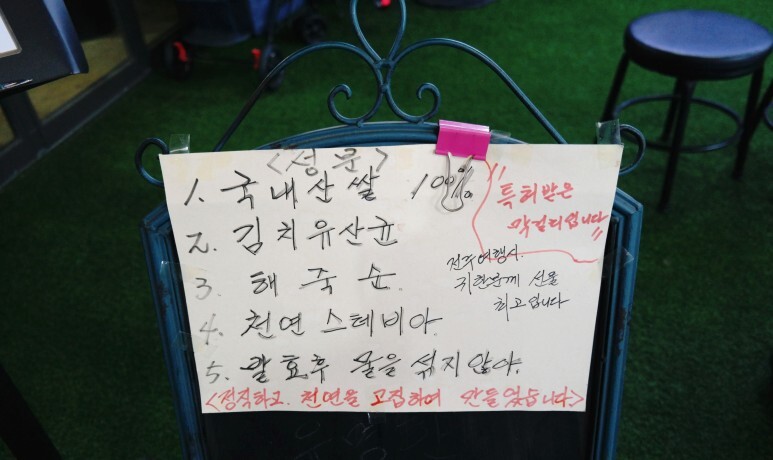 <성분>
1. 국내산쌀 100%
"특허받은
막걸리입니다"
2. 김치유산균
3. 해죽순
전주여행시.
귀한분께 선물
최고입니다
4. 천연 스테비아.
5. 발효후 물을 섞지않아.
<정직하고. 천연을 고집하여 만들었습니다>